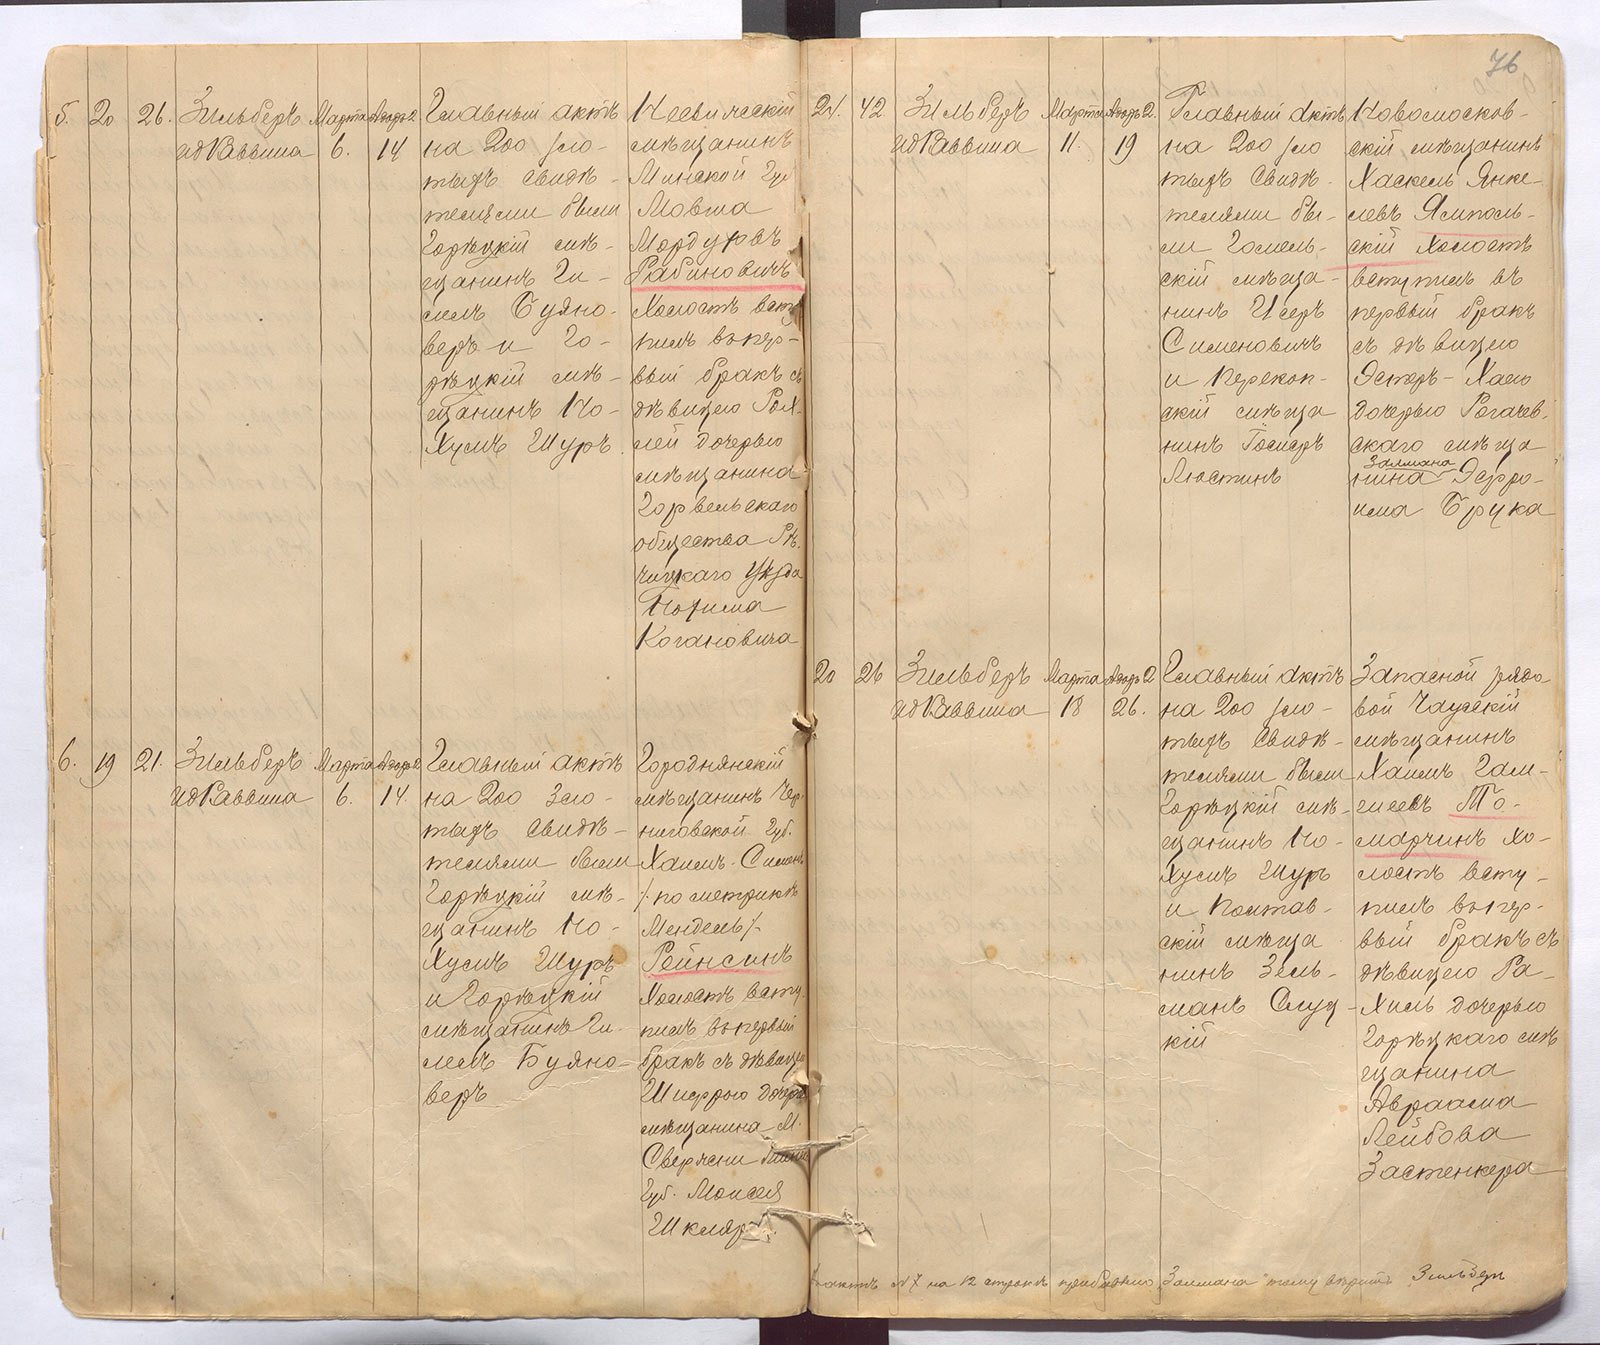 76
5. 20 26. Зильберъ Марта Агодръ 2.
идРаввина 6. 14
Главный актъ
на 200 зло-
тыхъ Свидѣ-
телями были
Горѣцкій мѣ-
щанинъ Ги-
лелъ Буяно-
веръ и Го-
рѣцкій мѣ-
щанинъ Но-
Хумъ Шуръ.
Несвижскій
мѣщанинъ
Минской Губ
Мовша
Мордуховъ
Рабиновичъ
Холостъ всту
пилъ въ пер-
вый бракъ съ
дѣвицею Рох-
лей дочерью
мѣщанина
Горвельскаго
общества Рѣ-
чицкаго Уѣзда
Нохима
Когановича
6. 19 21. Зильберъ Марта Агодръ 2.
идРаввина 6. 14.
Главный актъ
на 200 Зло-
тыхъ Свидѣ-
телями были
Горѣцкій мѣ-
щанинъ Но-
Хумъ Шуръ
и Горѣцкій
мѣщанинъ Ги-
лелъ Буяно-
веръ
Городнянскій
мѣщанинъ Чер-
ниговской Губ.
Хаимъ-Симонъ
/по метрикѣ
Мендель/.
Рейнсинъ
Холостъ всту-
пилъ въ первый
бракъ съ дѣвицею
Шифрою дочерь
мѣщанина М.
Свержени Минс
Губ. Моисея
Шкляр
21. 42 Зильберъ Марта Агодръ 2.
идРаввина 11. 19
Главный Актъ
на 200 зло
тыхъ Свидѣ-
телями бы-
ли Гомель-
скій мѣща-
нинъ Исеръ
Сименовичъ
и Перекоп-
скій мѣща
нинъ Іосиеръ
Люстинъ
Новомосков-
скій мѣщанинъ
Хаскель Янке-
левъ Ямполь-
скій Холостъ
вступилъ въ
первый бракъ
съ дѣвицею
Эстеръ-Хаею
дочерью Рогачев-
скаго мѣща
Залмана
нина Эфро-
има Брука
20 26 Зильберъ Марта Агодръ 2
идРаввина 18 26.
Главный Актъ
на 200 зло-
тыхъ Свидѣ-
телями были
Горѣцкій мѣ-
щанинъ Но-
Хумъ Шуръ
и Полтав-
скій мѣща
нинъ Зель-
манъ Слуц-
кій
Запасной рядо-
вой Чаусскій
мѣщанинъ
Хаимъ Гам-
шеевъ То-
марчинъ Хо-
лостъ всту-
пилъ въ пер-
вый бракъ съ
дѣвицею Ра-
Хиль дочерью
Горѣцкаго мѣ
щанина
Авраама
Лейбова
Застенкера
актѣ №7 на 12 строкѣ прибавлено Залмана тому вѣрить Зильберъ